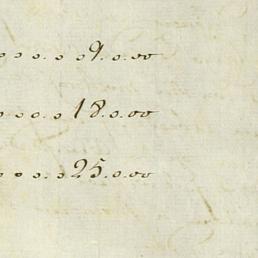 . . . . . . 9. 0. 00
. . . . . 18. 0. 00
. . . . . 25. 0. 00